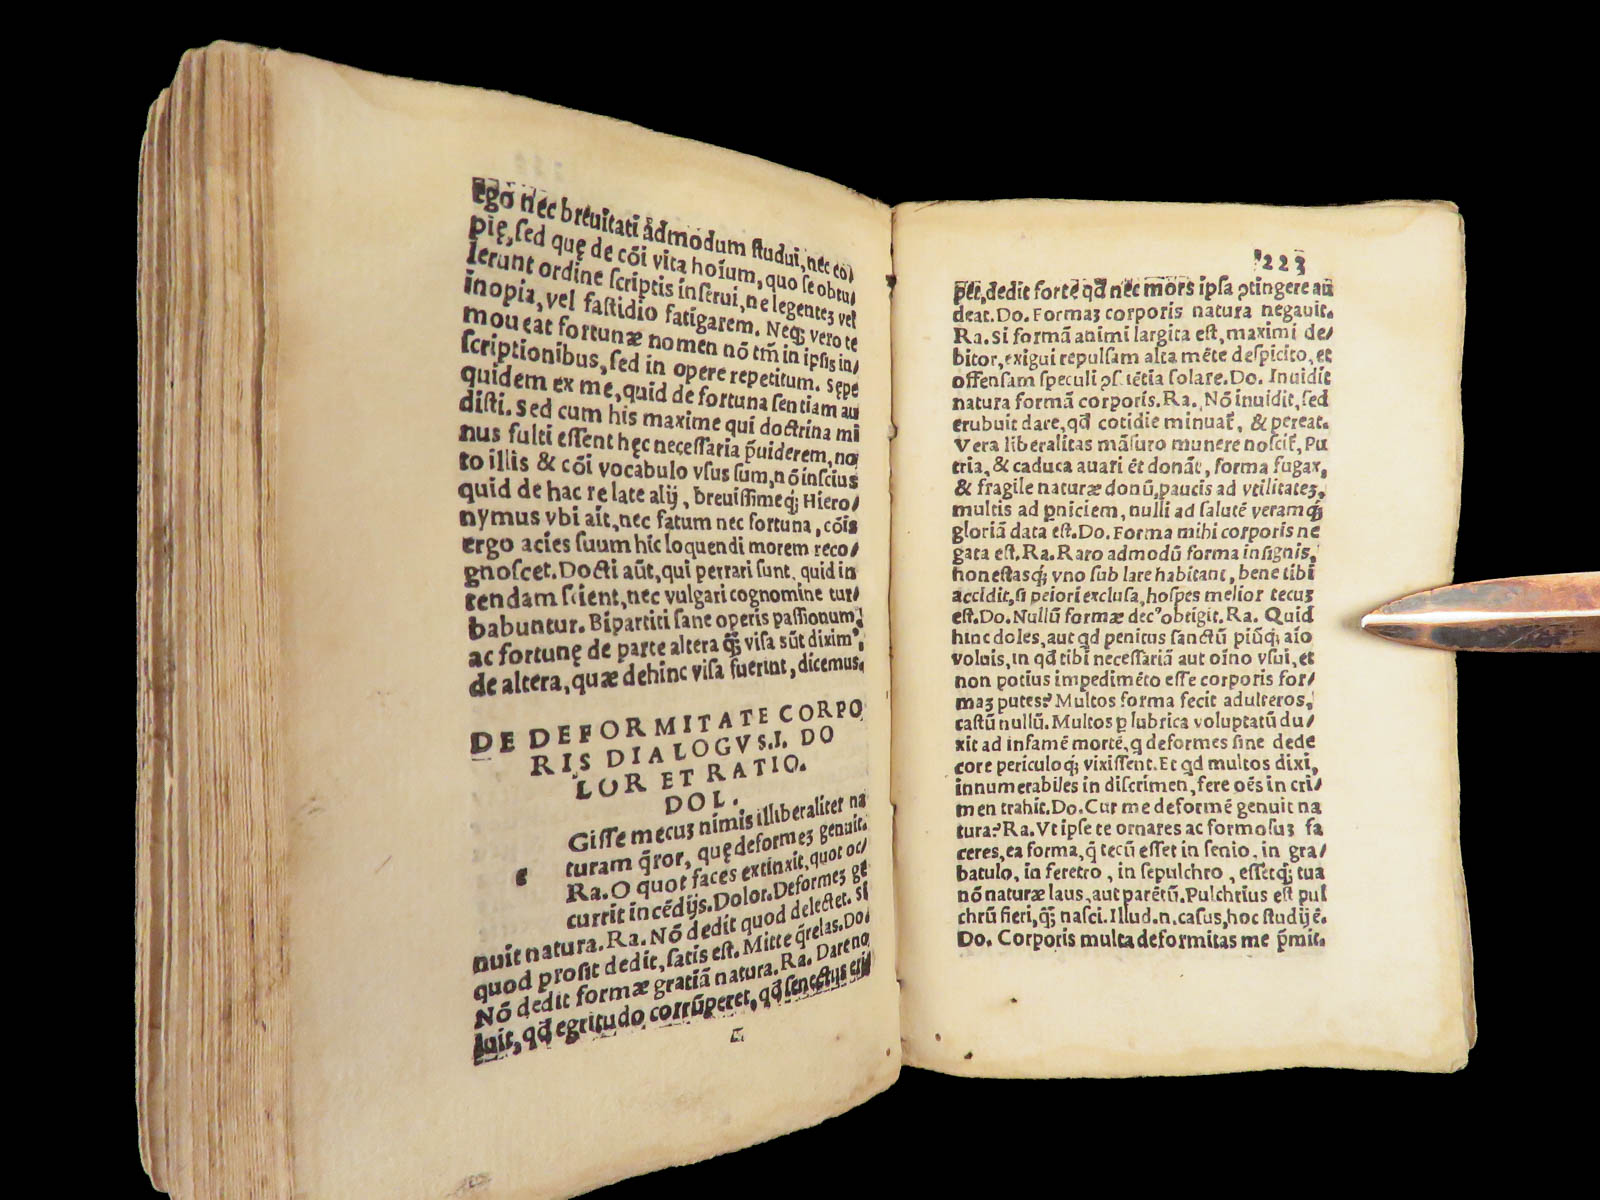 ego nec breuitati admodum ſtudui, nec co/
pię, ſed quę de cōi vita hoīum, quo ſe obtu/
lerunt ordine ſcriptis inſerui, ne legentez vel
inopia, vel faſtidio fatigarem. Neq; vero te
moueat fortunæ nomen nō tm̄ in ipſis in/
ſcriptionibus, ſed in opere repetitum. Sępe
quidem ex me, quid de fortuna ſentiam au
diſti. Sed cum his maxime qui doctrina mi
nus fulti eſſent hęc neceſſaria p̄uiderem, no
to illis & cōi vocabulo vſus ſum, nō inſcius
quid de hac re late alij, breuiſſimeq; Hiero/
nymus vbi ait, nec fatum nec fortuna, cōis
ergo acies ſuum hic loquendi morem reco/
gnoſcet. Docti aūt, qui perrari ſunt, quid in
tendam ſcient, nec vulgari cognomine tur/
babuntur. Bipartiti ſane operis paſſionum,
ac fortunę de parte altera q̄; viſa sūt dixim⁹,
de altera, quæ dehinc viſa fuerint, dicemus.
DE DEFORMITATE CORPO
RIS DIALOGVS. I. DO
LOR ET RATIO.
DOL.
e
Giſſe mecuʒ nimis illiberaliter na
turam q̄ror, quę deformeʒ genuit.
Ra. O quot faces extinxit, quot oc/
currit incēdijs. Dolor. Deformeʒ ge
nuit natura. Ra. Nō dedit quod delectet. Si
quod proſit dedit, ſatis eſt. Mitte q̄relas. Do.
Nō dedit formæ gratiā natura. Ra. Dare no
luit, qd̄ egritudo corrūperet, qd̄ ſenectus eri
223
per, dedit forte qd̄ nec mors ipſa ꝯtingere au
deat. Do. Formaʒ corporis natura negauit.
Ra. Si formā animi largita eſt, maximi de/
bitor, exigui repulſam alta mēte deſpicito, et
offenſam ſpeculi ꝯſciētia ſolare. Do. Inuidit
natura formā corporis. Ra. Nō inuidit, ſed
erubuit dare, qd̄ cotidie minuat̄, & pereat.
Vera liberalitas māſuro munere noſcit̄, Pu
tria, & caduca auari ēt donāt, forma fugax,
& fragile naturæ donū, paucis ad vtilitateʒ,
multis ad ꝑniciem, nulli ad ſalutē veramq;
gloriā data eſt. Do. Forma mihi corporis ne
gata eſt. Ra. Raro admodū forma inſignis,
honeſtasq; vno ſub lare habitant, bene tibi
accidit, ſi peiori excluſa, hoſpes melior tecuʒ
eſt. Do. Nullū formæ dec⁹ obtigit. Ra. Quid
hinc doles, aut qd̄ penitus ſanctū piūq; aīo
voluis, in qd̄ tibi neceſſariā aut oīno vſui, et
non potius impedimēto eſſe corporis for/
maʒ putes? Multos forma fecit adulteros,
caſtū nullū. Multos ꝑ lubrica voluptatū du/
xit ad infamē mortē, q deformes ſine dede
core periculoq; vixiſſent. Et qd̄ multos dixi,
innumerabiles in diſcrimen, fere oēs in cri/
men trahit. Do. Cur me deformē genuit na
tura? Ra. Vt ipſe te ornares ac formoſuʒ fa
ceres, ea forma, q̄ tecū eſſet in ſenio, in gra/
batulo, in feretro, in ſepulchro, eſſetq; tua
nō naturæ laus, aut parētū. Pulchrius eſt pul
chrū fieri, q̄; naſci. Illud .n. caſus, hoc ſtudij ē.
Do. Corporis multa deformitas me p̄mit.